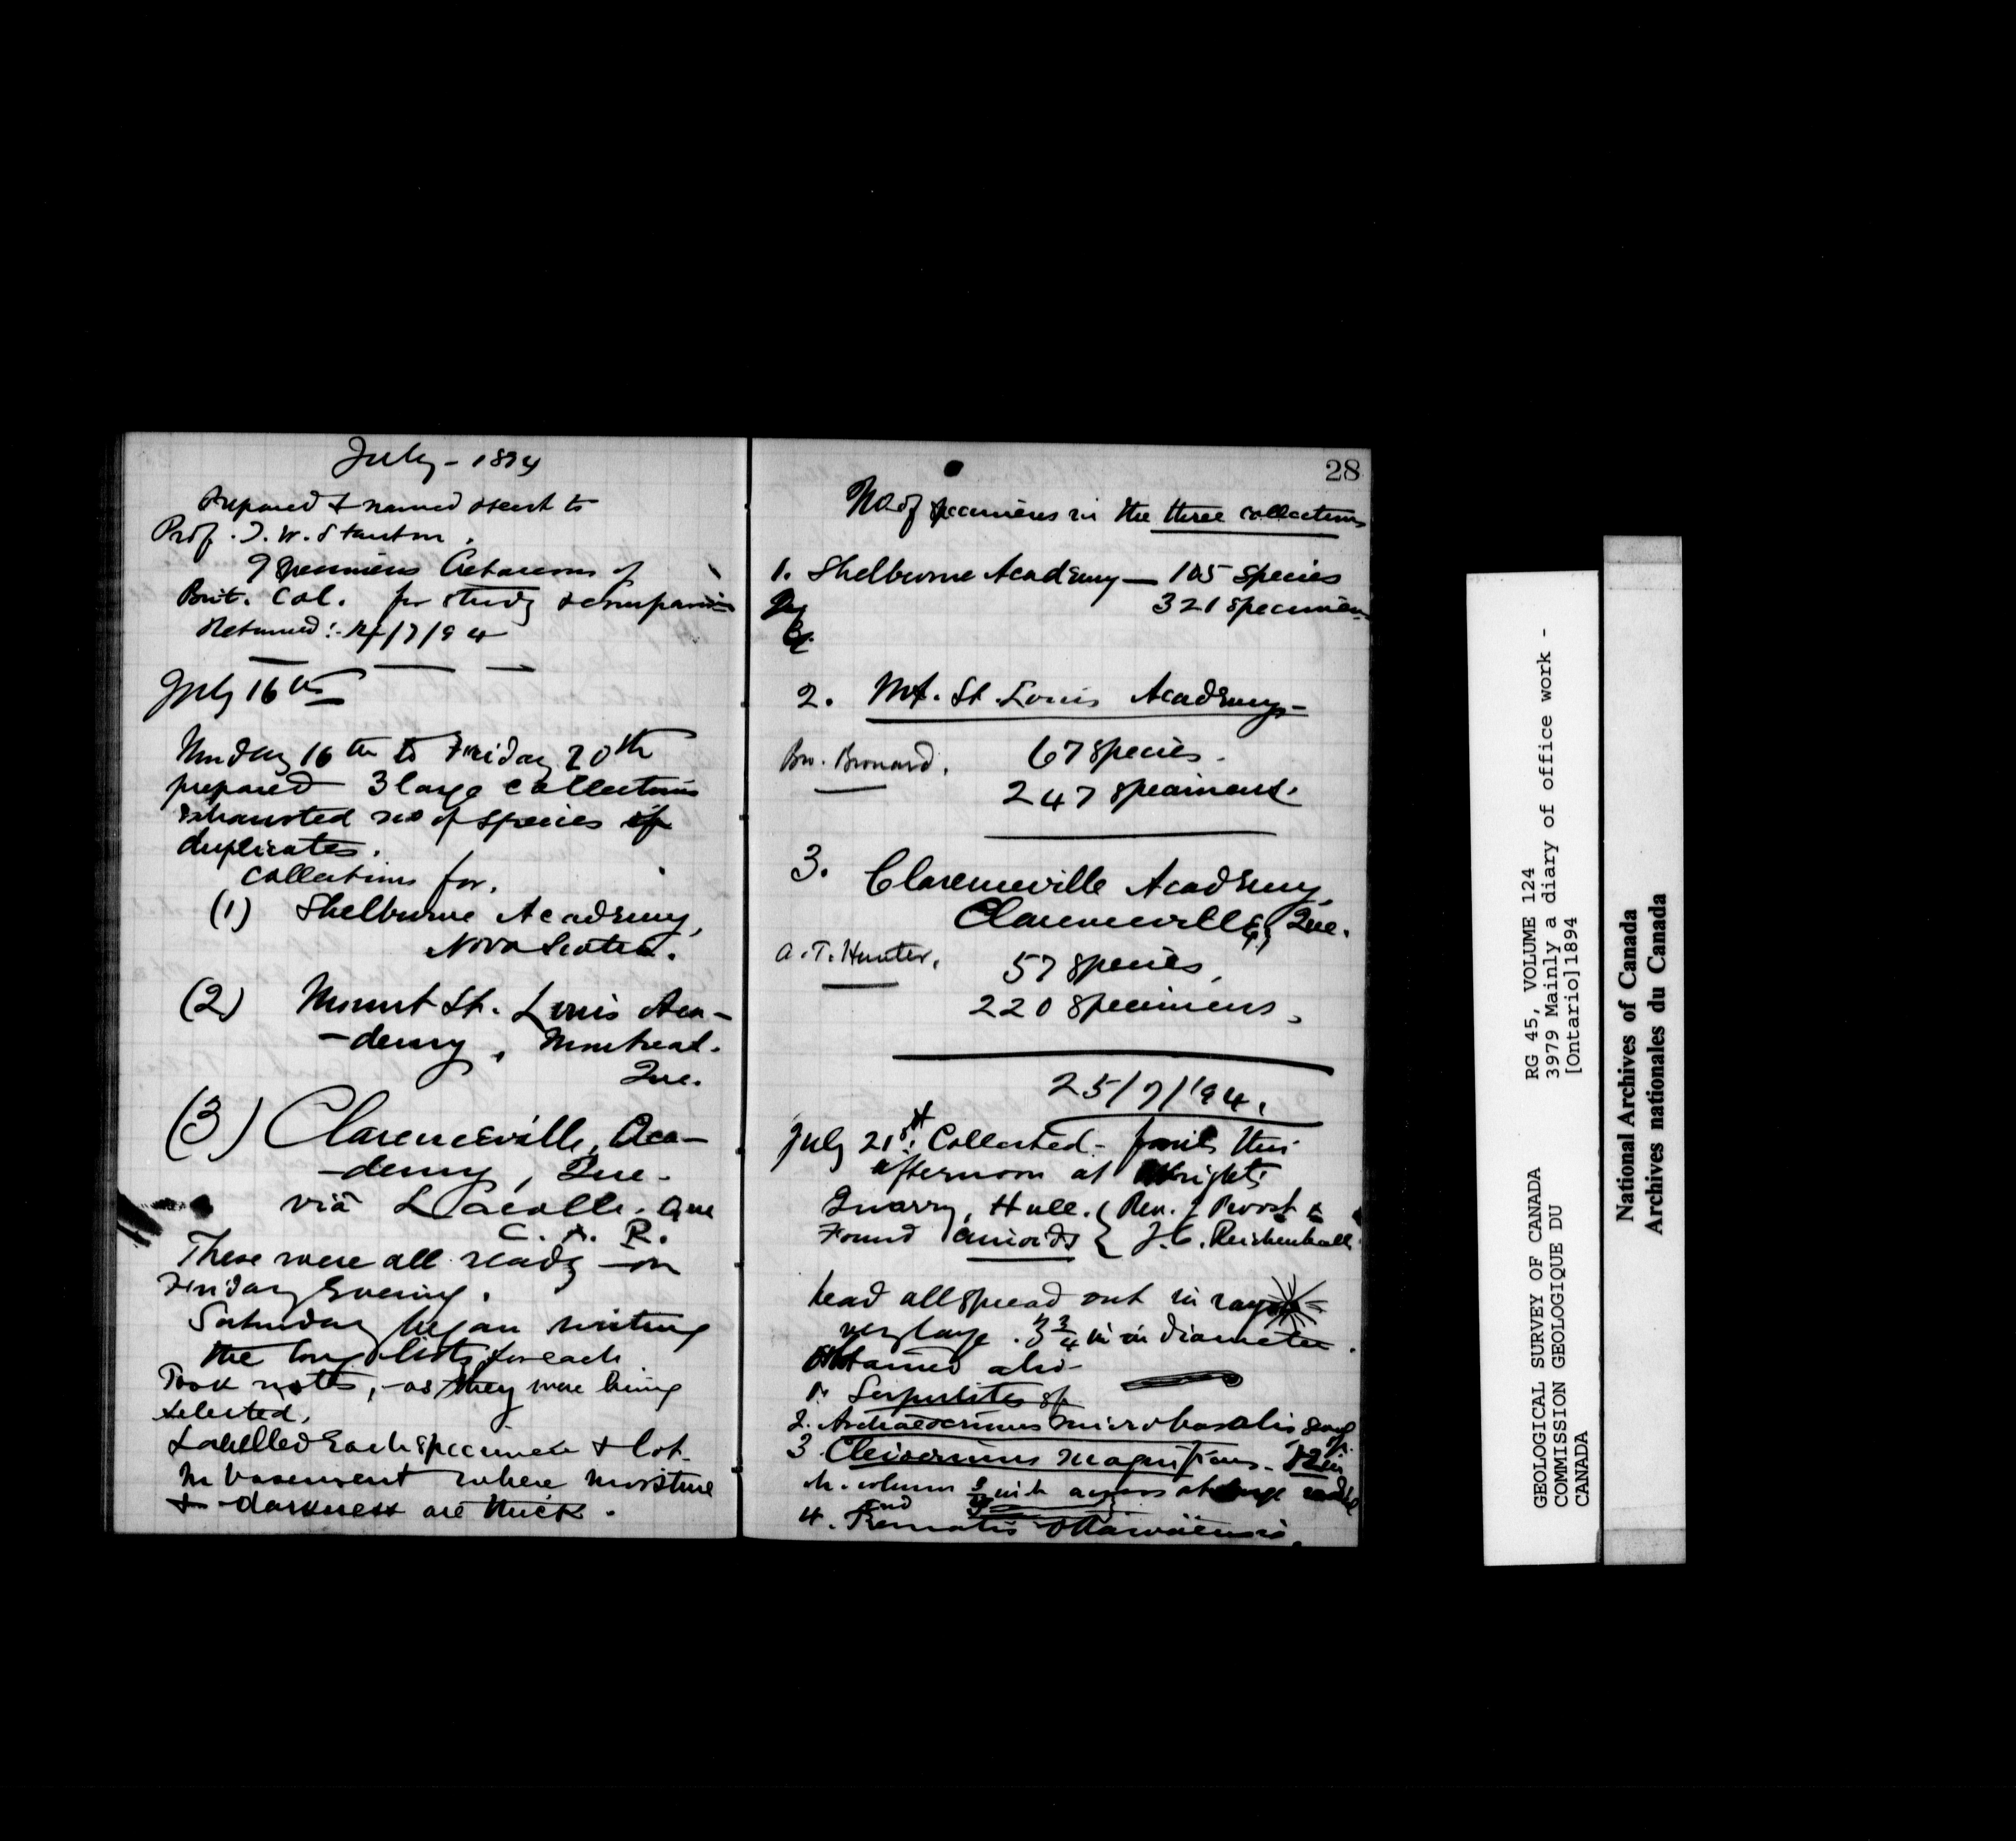 July - 1894
Prepared & named & sent to
Prof. T. W. Stanton.
9 specimens Cretaceous of
Brit. Col. for study & comparison
Returned: /7/94
July 16th
Monday 16th to Friday 20th
prepared 3 large collections
exhausted no of species of
duplicates.
Collections for.
(1) Shelburne Academy,
Nova Scotia.
(2) Mount St. Louis Aca-
-demy, Montreal.
Que.
(3) Clarenceville, Aca-
-demy, Que.
via Lacolle. Que
C. A. R.
These were all ready - on
Friday Evening.
Saturday began writing
the long lists for each
Took notes, - as they were being
selected.
Labelled Each specimen & lot.
In basement where moisture
& - darkness are thick.
28
No of specimens in the three collections
1. Shelburne Academy — 105 species
321 specimens
2. Mt. St. Louis Academy -
Bro. 67 species.
247 specimens.
3. Clarenceville Academy,
Clarenceville, Que.
A. T. Hunter, 57 species,
220 specimens.
25/7/94.
July 21st. Collected - fossils this
afternoon at Wright's
Quarry, Hull. { Rev. Provost &
Found Crinoids { J. C.
head all spread out in rays
very large. 3 3/4 in in diameter.
Obtained also -
1. Serpulites sp.
2. Archaeocrinus microbasalis
3. Cleiocrinus magnificus. 12 in
column with across at large
4. Trematis Ottawaensis.
GEOLOGICAL SURVEY OF CANADA
COMMISSION GEOLOGIQUE DU
CANADA
RG 45, VOLUME 124
3979 Mainly a diary of office work -
[Ontario]1894
National Archives of Canada
Archives nationales du Canada